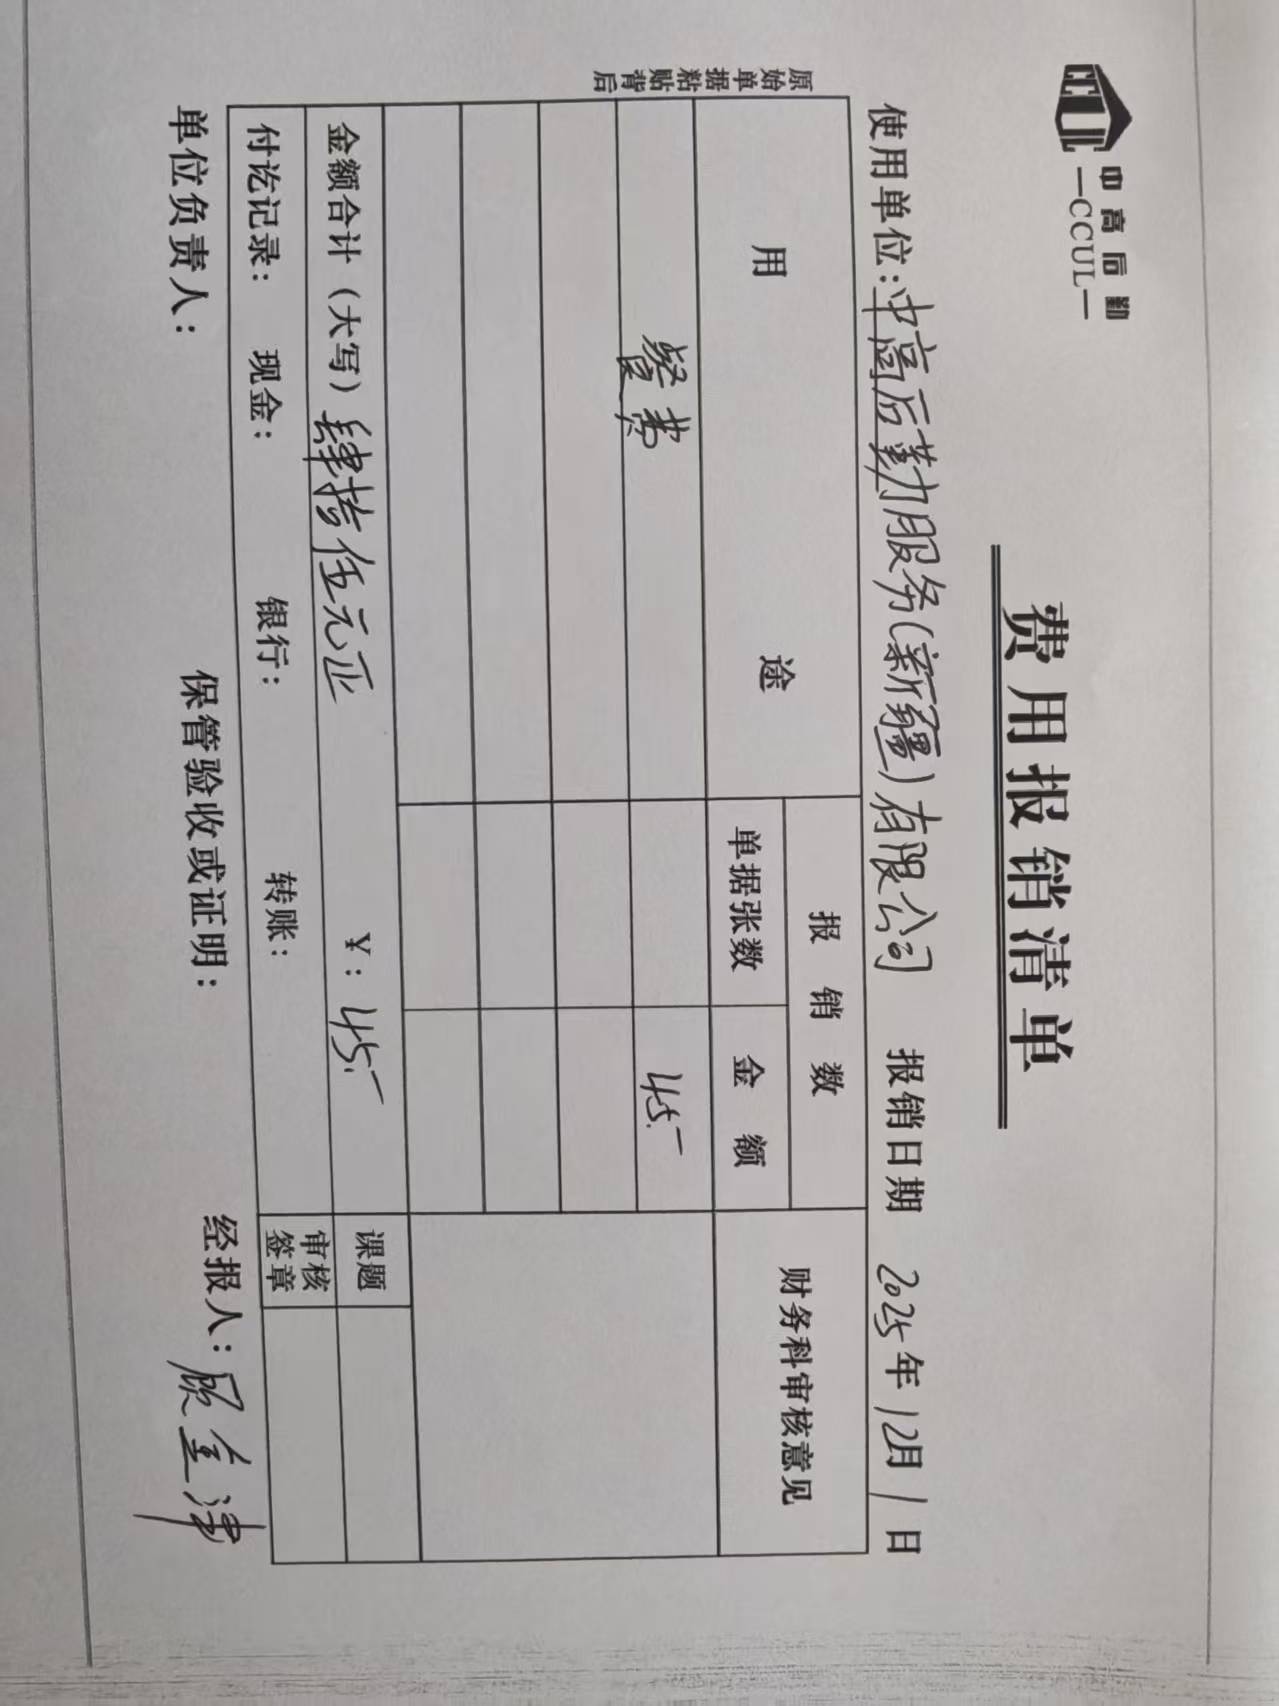 中高后勤
—CCUL—
费用报销清单
使用单位：中高后勤服务（新疆）有限公司 报销日期 2025年12月1日
用 途 报销数 财务科审核意见
单据张数 金额
餐费 45.-
金额合计（大写）肆拾伍元正 ¥：45.- 课题
付讫记录： 现金： 银行： 转账： 审核签章
原始单据粘贴背后
单位负责人： 保管验收或证明： 经报人：顾金津